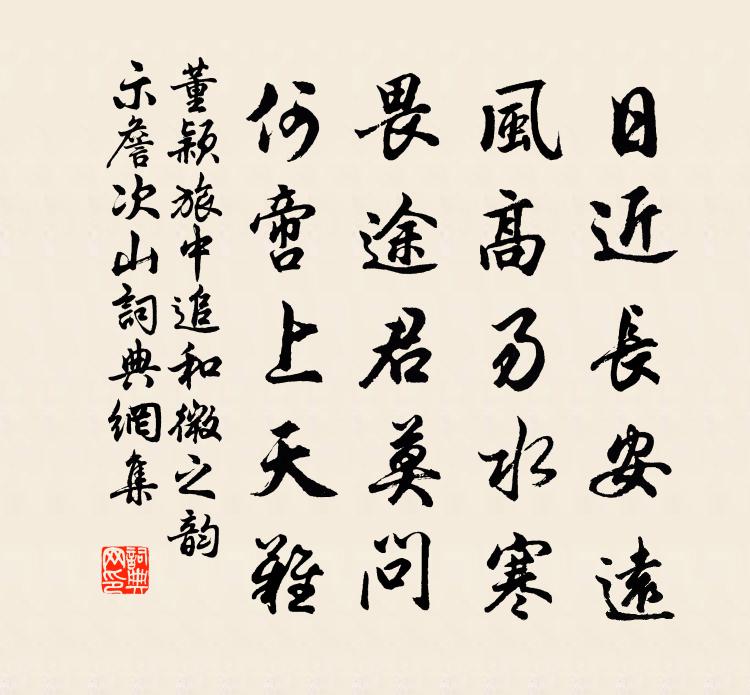 日近長安遠
風高易水寒
畏途君莫問
何啻上天難
董穎旅中追和微之韵
示詹次山詞典網集
詞典
网印